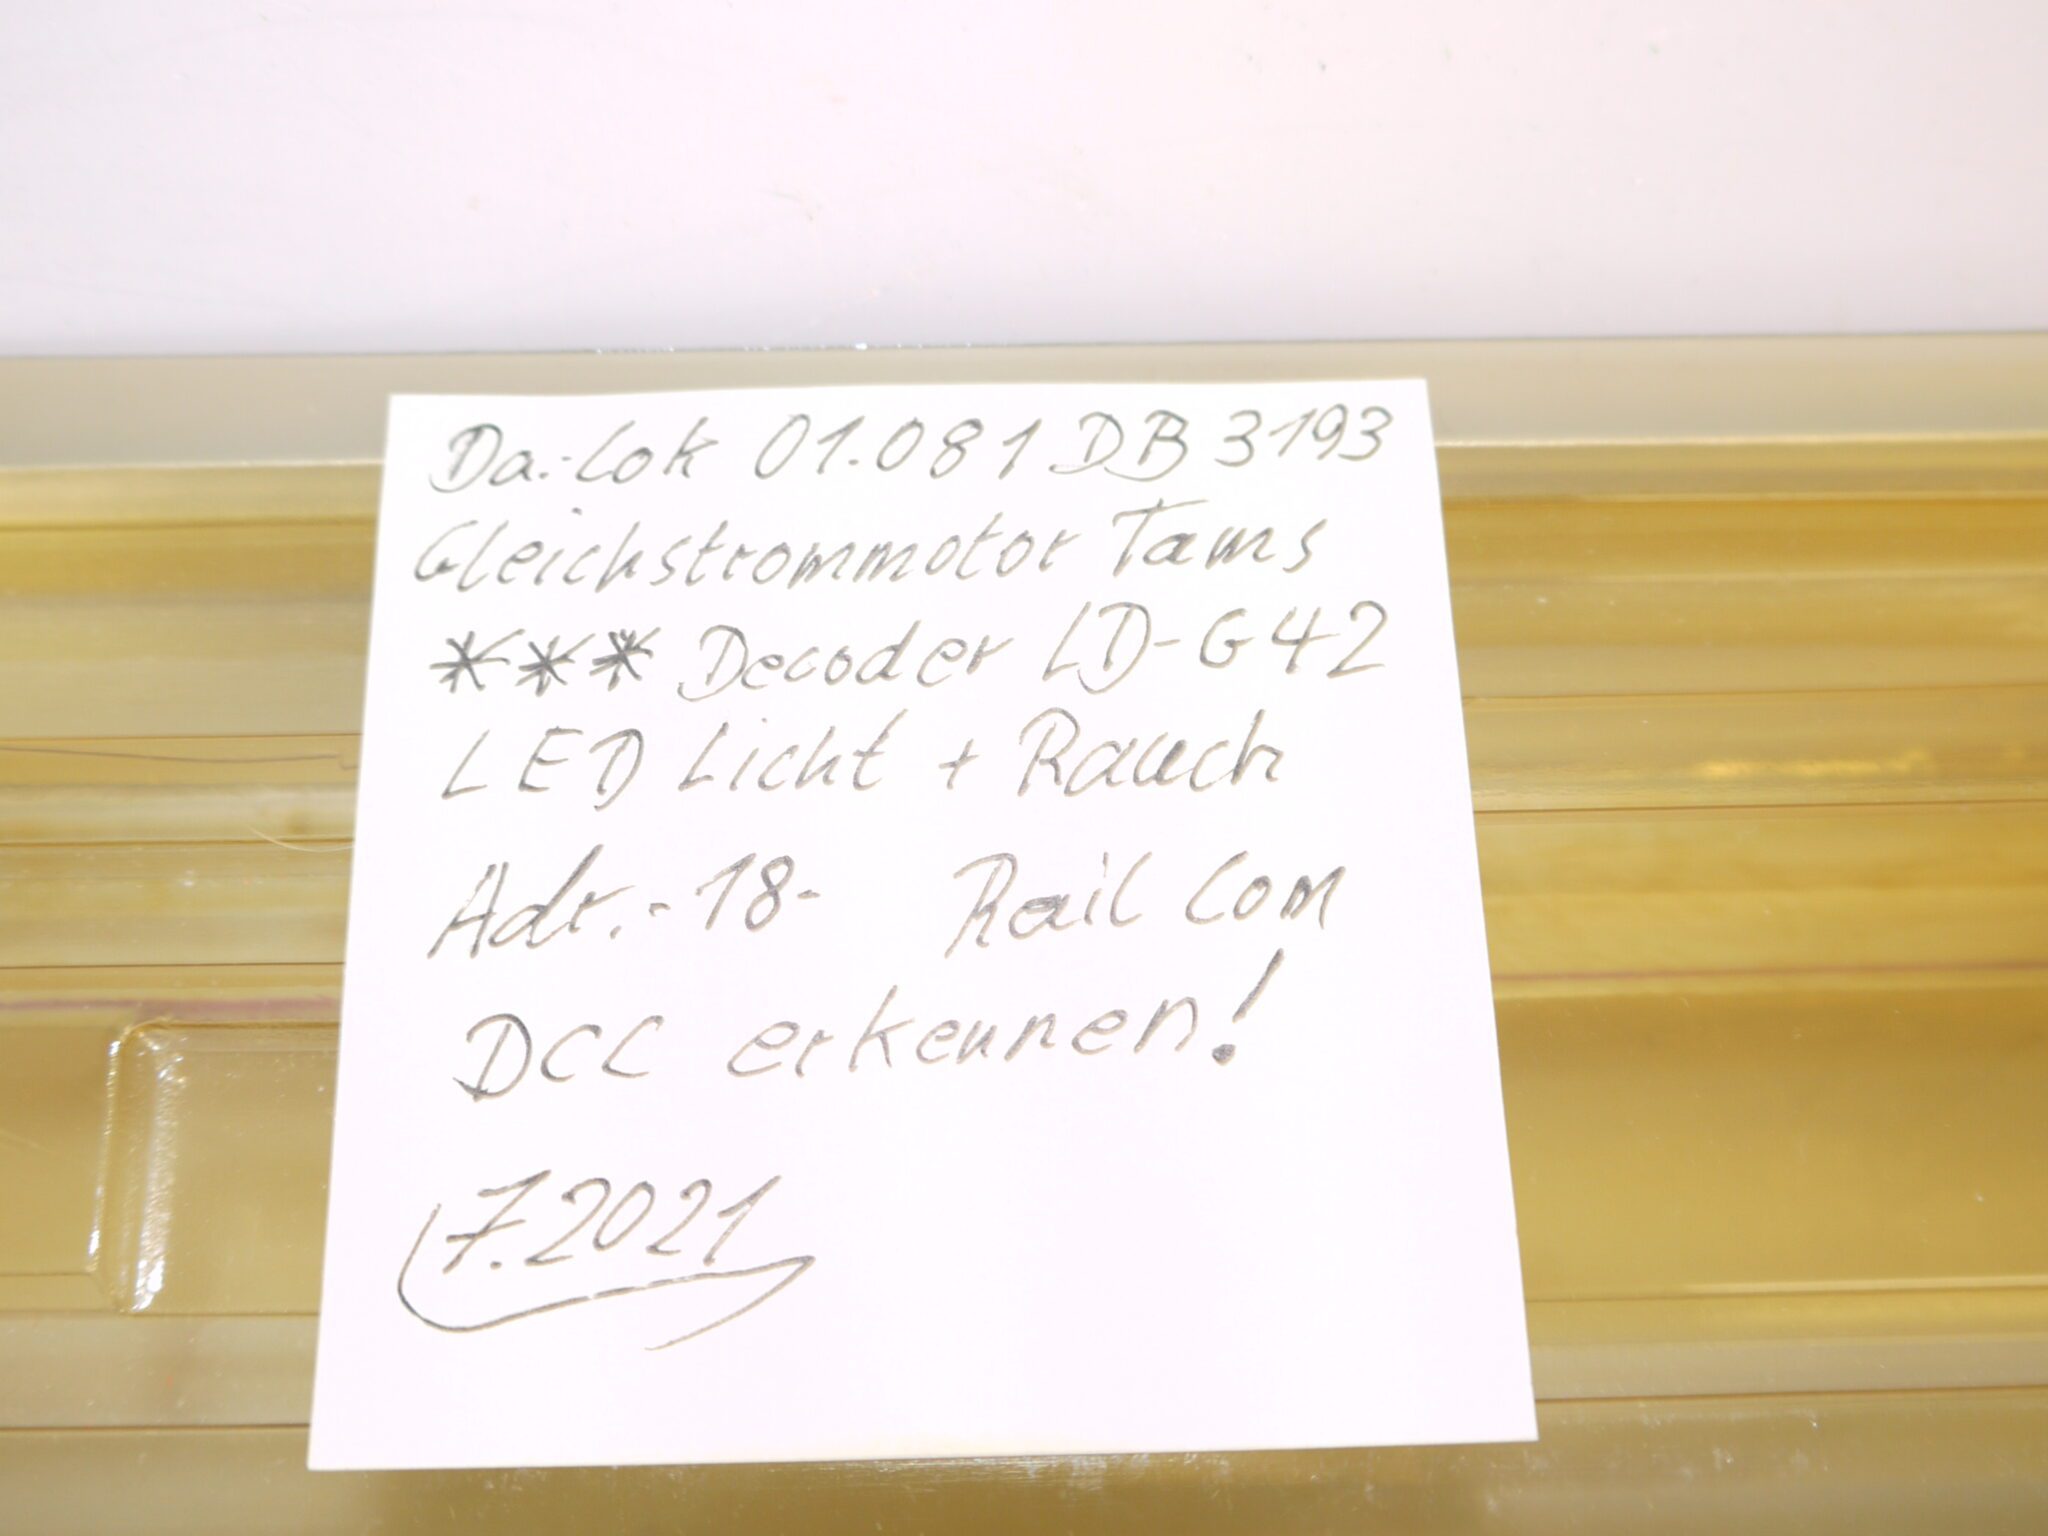 Da.-Lok 01.081 DB 3193
Gleichstrommotor Tams
*** Decoder LD-G42
LED Licht + Rauch
Adr.-18- Rail Com
DCC erkennen!
7.2021